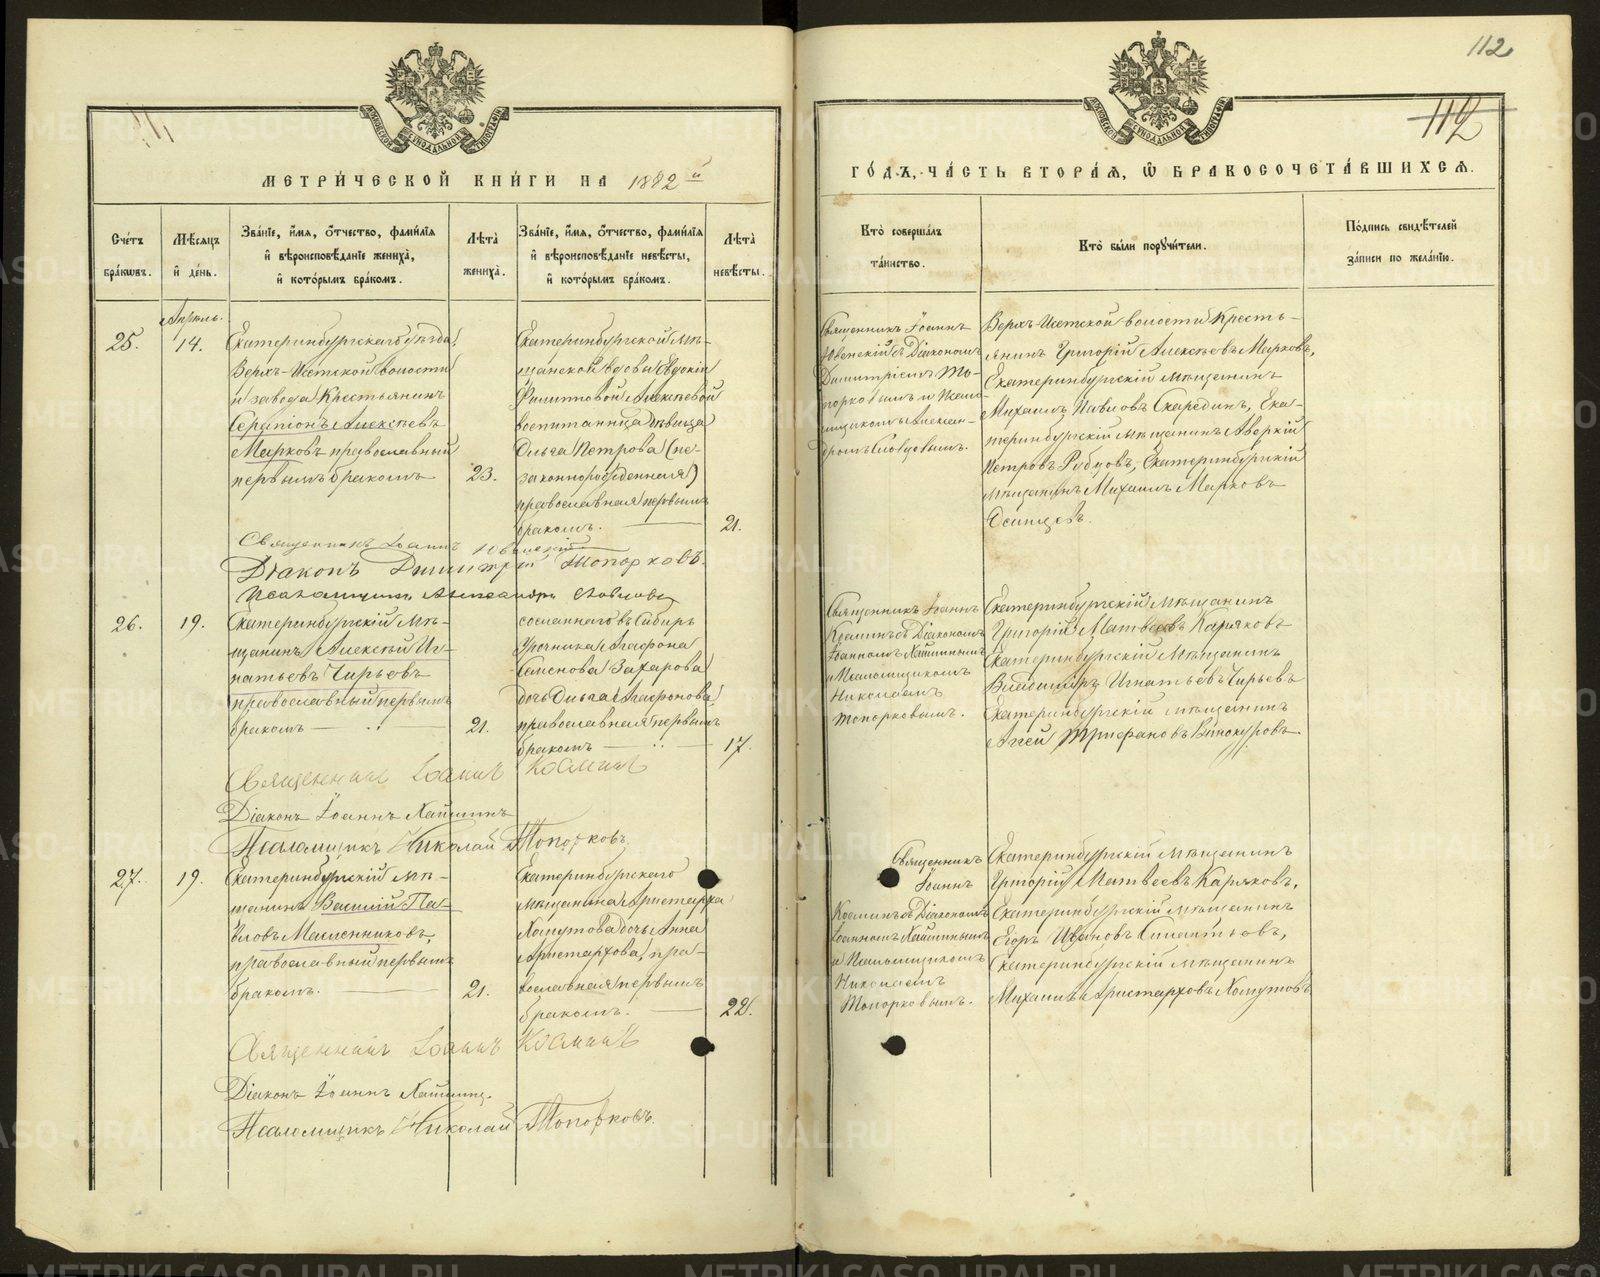 112
112
МЕТРИ́ЧЕСКОЙ КНИ́ГИ НА 1882 й
ГО́ДЪ, ЧА́СТЬ ВТОРА́Я, Ѡ БРАКОСОЧЕТА́ВШИХСЯ.
Сче́тъ бра́кѡвъ.
Мѣ́сяцъ и҆ де́нь.
Зва́нїе, и҆́мя, о҆́тчество, фами́лїя и҆ вѣроисповѣ́данїе жениха̀, и҆ кото́рымъ бра́комъ.
Лѣта̀ жениха̀.
Зва́нїе, и҆́мя, о҆́тчество, фами́лїя и҆ вѣроисповѣ́данїе невѣ́сты, и҆ кото́рымъ бра́комъ.
Лѣта̀ невѣ́сты.
Кто̀ соверша́лъ та́инство.
Кто̀ бы́ли порꙋчи́тели.
По́дпись свидѣ́телей за́писи по жела́нїю.
25.
Апрѣль.
14.
Екатеринбургскаго уѣзда
Верхъ-Исетской волости
и завода Крестьянинъ
Серапіонъ Алексѣевъ
Марковъ православный
первымъ бракомъ
23.
Екатеринбургской мѣ-
щанской вдовы Евдокіи
Филипповой Алексѣевой
воспитанница дѣвица
Ольга Петрова (не-
законнорожденная)
православная первымъ
бракомъ.
21.
Священникъ Іоаннъ
Ювенскій съ Діакономъ
Димитріемъ То-
порковымъ и Псало-
мщикомъ Алексан-
дромъ Словцовымъ.
Верхъ-Исетской волости Кресть-
янинъ Григорій Алексѣевъ Марковъ,
Екатеринбургскій мѣщанинъ
Михаилъ Павловъ Скарединъ, Ека-
теринбургскій мѣщанинъ Аверкій
Петровъ Рубцовъ, Екатеринбургскій
мѣщанинъ Михаилъ Марковъ
Осинцевъ.
Священникъ Іоаннъ Ювенскій
Діаконъ Димитрій Топорковъ.
Псаломщикъ Александръ Словцовъ
26.
19.
Екатеринбургскій мѣ-
щанинъ Алексѣй Иг-
натьевъ Чирьевъ
православный первымъ
бракомъ
21.
сосланнаго въ Сибирь
Урочника Агафона
Семенова Захарова
дочь Ольга Агафонова
православная первымъ
бракомъ
17.
Священникъ Іоаннъ
Косминъ съ Діакономъ
Іоанномъ Хайминымъ
и Псаломщикомъ
Николаемъ
Топорковымъ.
Екатеринбургскій мѣщанинъ
Григорій Матвѣевъ Каряковъ
Екатеринбургскій мѣщанинъ
Владиміръ Игнатьевъ Чирьевъ
Екатеринбургскій мѣщанинъ
Агей Трифановъ Винокуровъ.
Священникъ Іоаннъ Косминъ
Діаконъ Іоаннъ Хайминъ
Псаломщикъ Николай Топорковъ
27.
19.
Екатеринбургскій мѣ-
щанинъ Василій Па-
вловъ Масленниковъ,
православный первымъ
бракомъ.
21.
Екатеринбургскаго
мѣщанина Аристарха
Хомутова дочь Анна
Аристархова, пра-
вославная первымъ
бракомъ.
22.
Священникъ
Іоаннъ
Косминъ съ Діакономъ
Іоанномъ Хайминымъ
и Псаломщикомъ
Николаемъ
Топорковымъ.
Екатеринбургскій мѣщанинъ
Григорій Матвѣевъ Каряковъ,
Екатеринбургскій мѣщанинъ
Егоръ Ивановъ
Екатеринбургскій мѣщанинъ
Михаилъ Аристарховъ Хомутовъ
Священникъ Іоаннъ Косминъ
Діаконъ Іоаннъ Хайминъ.
Псаломщикъ Николай Топорковъ.
METRIKI.GASO-URAL.RU